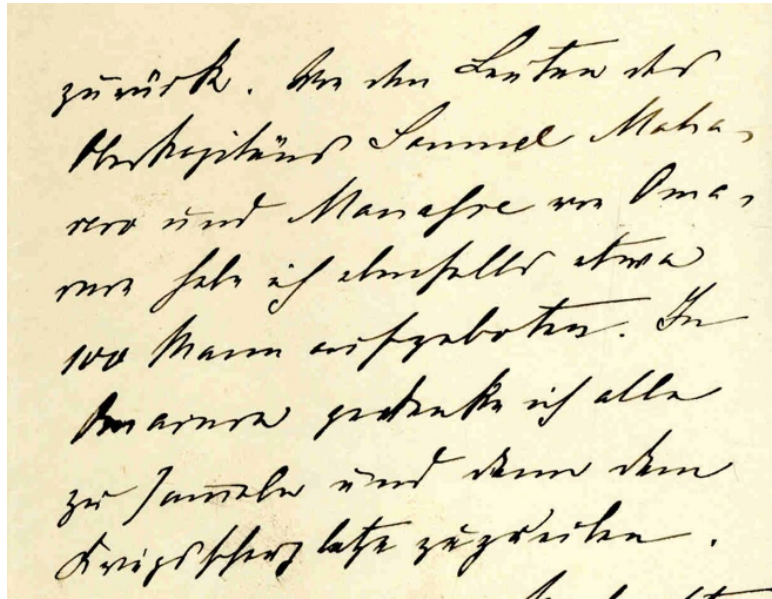 zurück. Von den Leuten des
Oberkapitäns Samuel Maha-
rero und Manasse von Oma-
ruru habe ich ebenfalls etwa
100 Mann aufgeboten. In
Omaruru gedenke ich alle
zu sammeln und dann dem
zuzueilen.